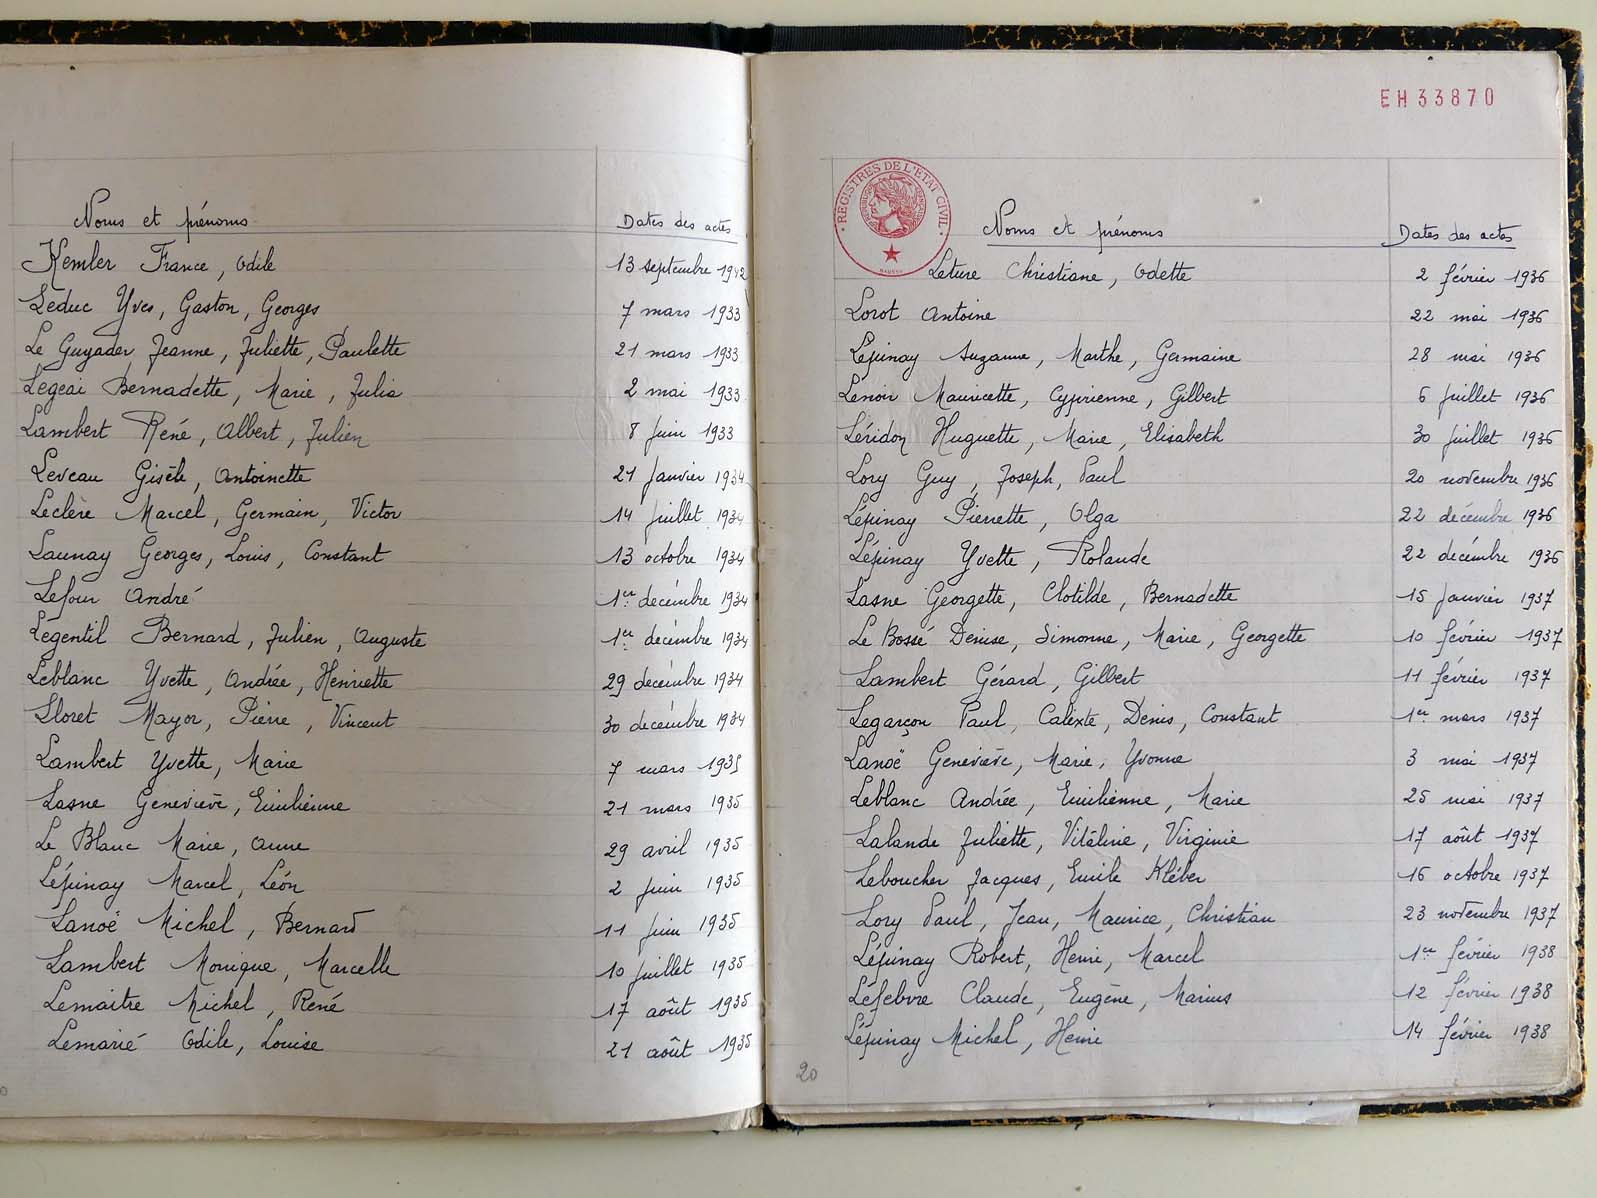 Noms et prénoms Dates des actes
Kemler France, Odile 13 septembre 1942
Leduc Yves, Gaston, Georges 7 mars 1933
Le Guyader Jeanne, Juliette, Paulette 21 mars 1933
Legeai Bernadette, Marie, Julia 2 mai 1933
Lambert René, Albert, Julien 8 juin 1933
Leveau Gisèle, Antoinette 21 janvier 1934
Leclère Marcel, Germain, Victor 14 juillet 1934
Launay Georges, Louis, Constant 13 octobre 1934
Lefour André 1er décembre 1934
Légentil Bernard, Julien, Auguste 1er décembre 1934
Leblanc Yvette, Andrée, Henriette 29 décembre 1934
Lloret Mayor, Pierre, Vincent 30 décembre 1934
Lambert Yvette, Marie 7 mars 1935
Lasne Geneviève, Emilienne 21 mars 1935
Le Blanc Marie, Anne 29 avril 1935
Lépinay Marcel, Léon 2 juin 1935
Lanoë Michel, Bernard 11 juin 1935
Lambert Monique, Marcelle 10 juillet 1935
Lemaitre Michel, René 17 août 1935
Lemarié Odile, Louise 21 août 1935
EH33870
REGISTRES DE L'ETAT CIVIL
Noms et prénoms Dates des actes
Leture Christiane, Odette 2 février 1936
Lorot Antoine 22 mai 1936
Lépinay Suzanne, Marthe, Germaine 28 mai 1936
Lenoir Mauricette, Cyprienne, Gilbert 6 juillet 1936
Léridon Huguette, Marie, Elisabeth 30 juillet 1936
Lory Guy, Joseph, Paul 20 novembre 1936
Lépinay Pierrette, Olga 22 décembre 1936
Lépinay Yvette, Rolande 22 décembre 1936
Lasne Georgette, Clotilde, Bernadette 15 janvier 1937
Le Bossé Denise, Simonne, Marie, Georgette 10 février 1937
Lambert Gérard, Gilbert 11 février 1937
Legarçon Paul, Calixte, Denis, Constant 1er mars 1937
Lanoë Geneviève, Marie, Yvonne 3 mai 1937
Leblanc Andrée, Emilienne, Marie 25 mai 1937
Lalande Juliette, Vitaline, Virginie 17 août 1937
Leboucher Jacques, Emile Kléber 16 octobre 1937
Lory Paul, Jean, Maurice, Christian 23 novembre 1937
Lépinay Robert, Henri, Marcel 1er février 1938
Léfebvre Claude, Eugène, Marius 12 février 1938
Lépinay Michel, Henri 14 février 1938
20